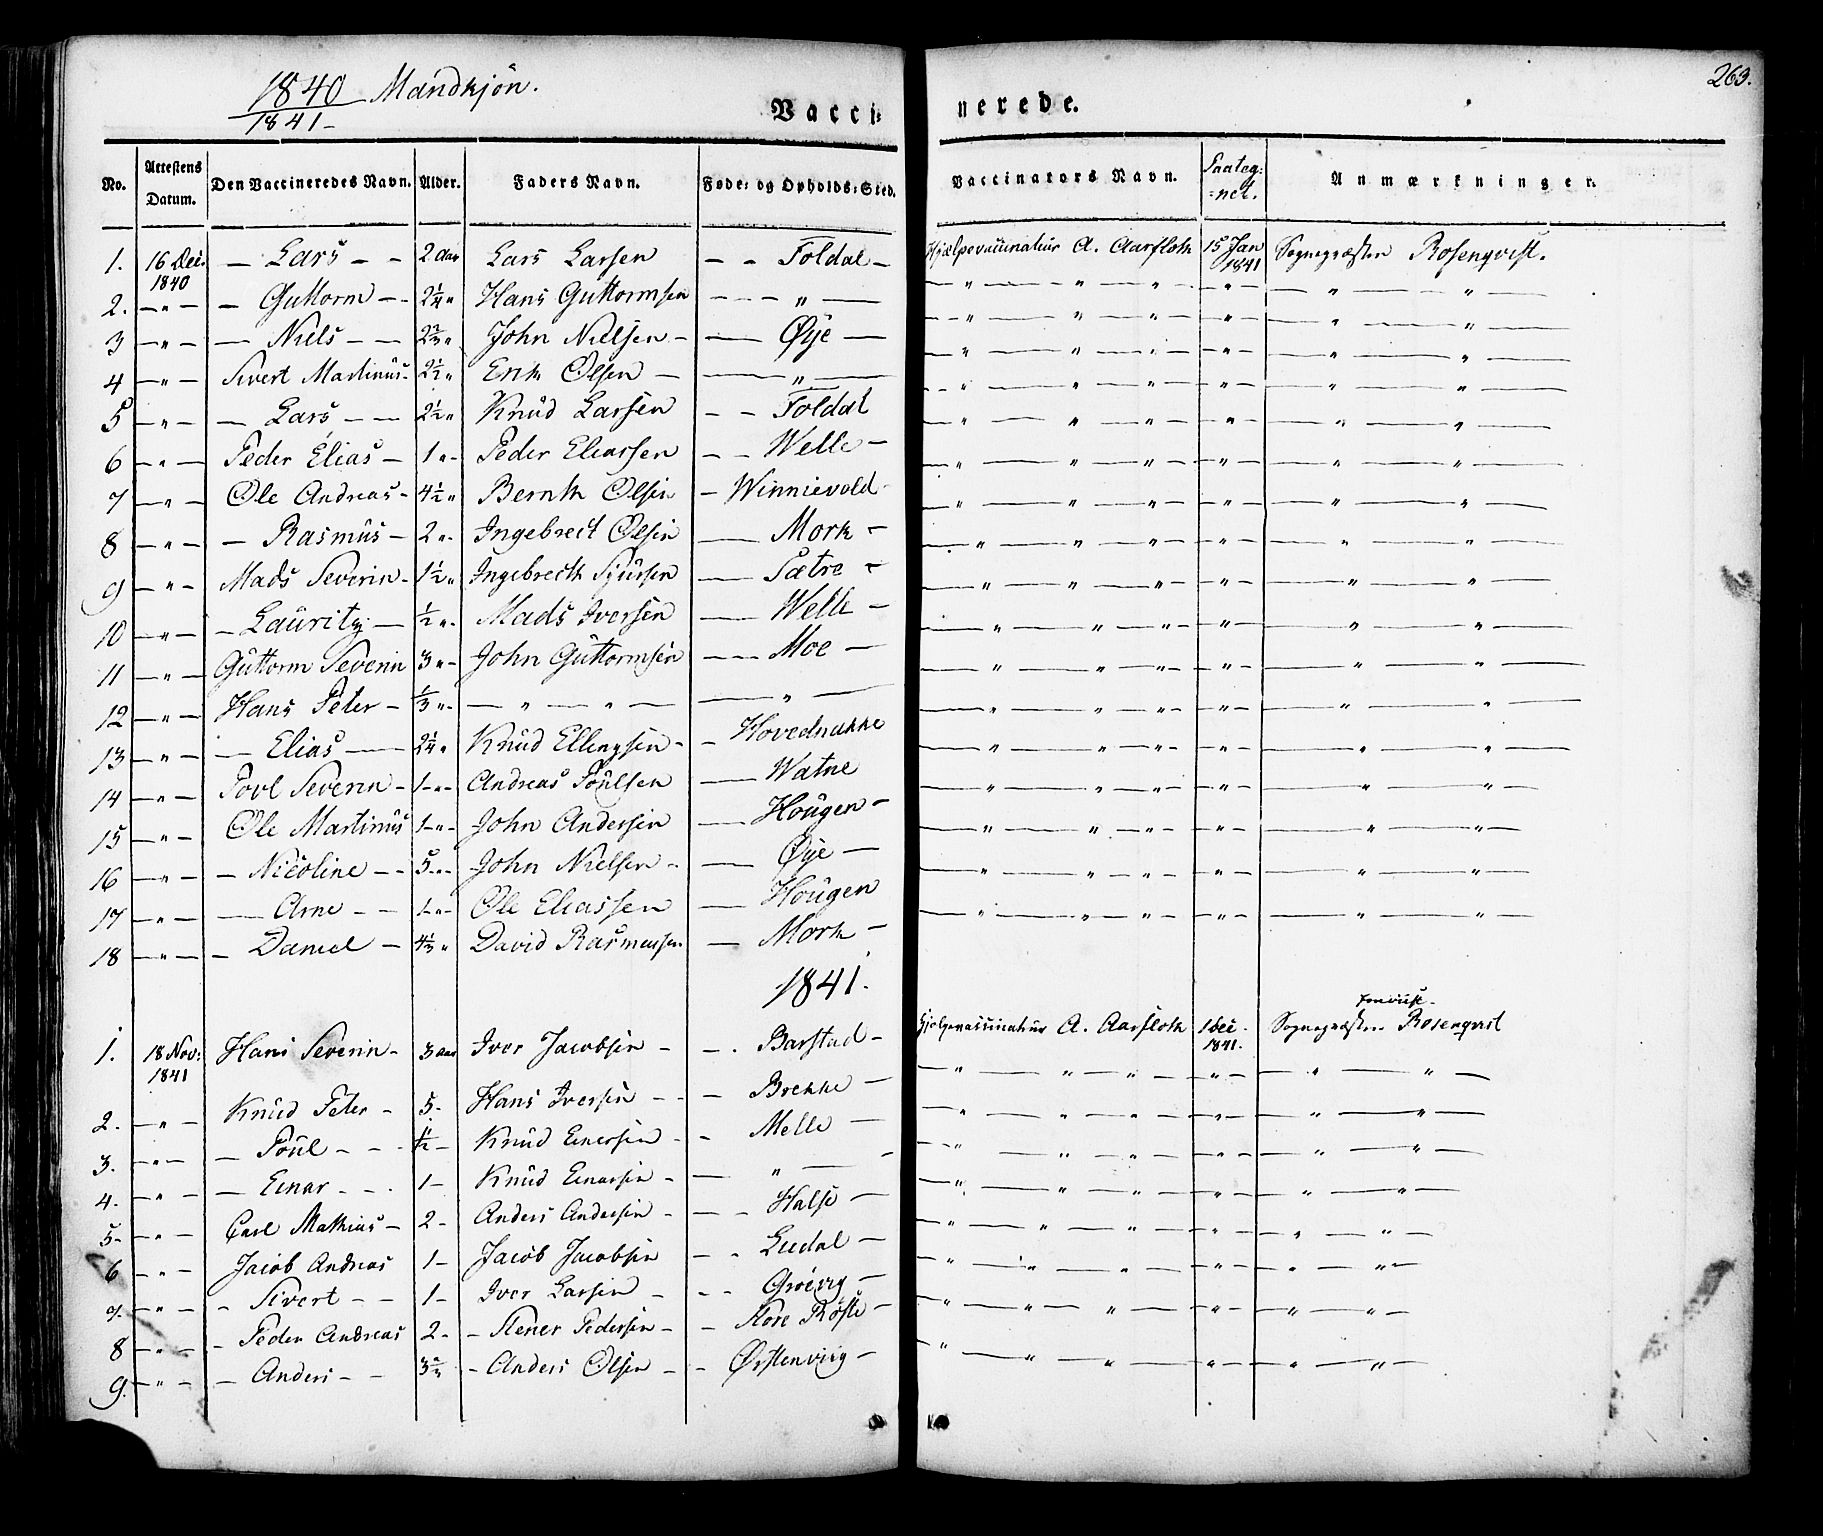 1840 Mandkjön.
1841-
263.
Vaccinerede.
No. Attestens Datum. Den Vaccineredes Navn. Alder. Faders Navn. Føde- og Opholds-Sted. Vaccinators Navn. Anmærkninger.
1. 16 Dec. 1840 — Lars — 2 Aar Lars Larsen — Foldal — Hjelpevaccinatur A. Aarfloth 15 Jan 1841 Sognepræsten Rosenqvist.
2. — " — — Guttorm — 2 1/4 " Hans Guttormsen — " — — " — " — " — " — " — "
3 — " — — Niels — 2 2/3 " John Nielsen — Øye — — " — " — " — " — " — "
4 — " — Sivert Martinus 2 1/2 " Erik Olsen — " — — " — " — " — " — " — "
5 — " — — Lars — 2 1/2 " Knud Larsen — Foldal — " — " — " — " — " — "
6 — " — Peder Elias — 1 " Peder Eliassen — Welle — — " — " — " — " — " — "
7 — " — Ole Andreas — 4 1/2 " Bernth Olsen — Winnievold — " — " — " — " — " — "
8 — " — — Rasmus — 2 " Ingebrect Olsen — Mork — — " — " — " — " — " — "
9 — " — Mads Severin — 1 1/2 " Ingebrecth Sjursen — Sætre — — " — " — " — " — " — "
10 — " — — Lauritz — 1/2 " Mads Iversen — Welle — — " — " — " — " — " — "
11 — " — Guttorm Severin 3 " John Guttormsen — Moe — — " — " — " — " — " — "
12 — " — Hans Peter — 1/3 " — " — " — — " — — " — " — " — " — " — "
13 — " — — Elias — 2 1/4 " Knud Ellingsen — Hovednakke — " — " — " — " — " — "
14 — " — Povl Severin — 1 — " — Andreas Poulsen — Watne — " — " — " — " — " — "
15 — " — Ole Martinus 1 — " — John Andersen — Hougen — — " — " — " — " — " — "
16 — " — — Nicoline — 5 — " — John Nielsen — Øye — — " — " — " — " — " — "
17 — " — — Arne — 1 — " — Ole Eliassen — Hougen — " — " — " — " — " — "
18 — " — — Daniel — 4 1/3 " David Rasmussen — Mork — — " — " — " — " — " — "
1841.
1. 18 Nov: 1841 Hans Severin — 3 Aar Iver Jacobsen — Barstad — Hjelpevaccinatur A. Aarfloth 1 Dec. 1841. Sognepræsten Rosenqvist
2. — " — Knud Peter — 5 — Hans Iversen — Brekke — — " — " — " — " — " — "
3. — " — — Poul — 1/2 — Knud Einersen — Melle — — " — " — " — " — " — "
4. — " — — Einar — 1 — Knud Einarsen — " — — " — " — " — " — " — "
5 — " — Carl Mathias — 2 — Anders Andersen — Halse — — " — " — " — " — " — "
6 — " — Jacob Andreas 1 — Jacob Jacobsen — Lidal — — " — " — " — " — " — "
7. — " — — Sivert — 1 — Iver Larsen — Grøvig — — " — " — " — " — " — "
8 — " — — Peder Andreas 2 — Stener Pedersen — Store Røste — — " — " — " — " — " — "
9. — " — — Anders — 3 2/3 — Anders Olsen — Ørstenviig — — " — " — " — " — " — "